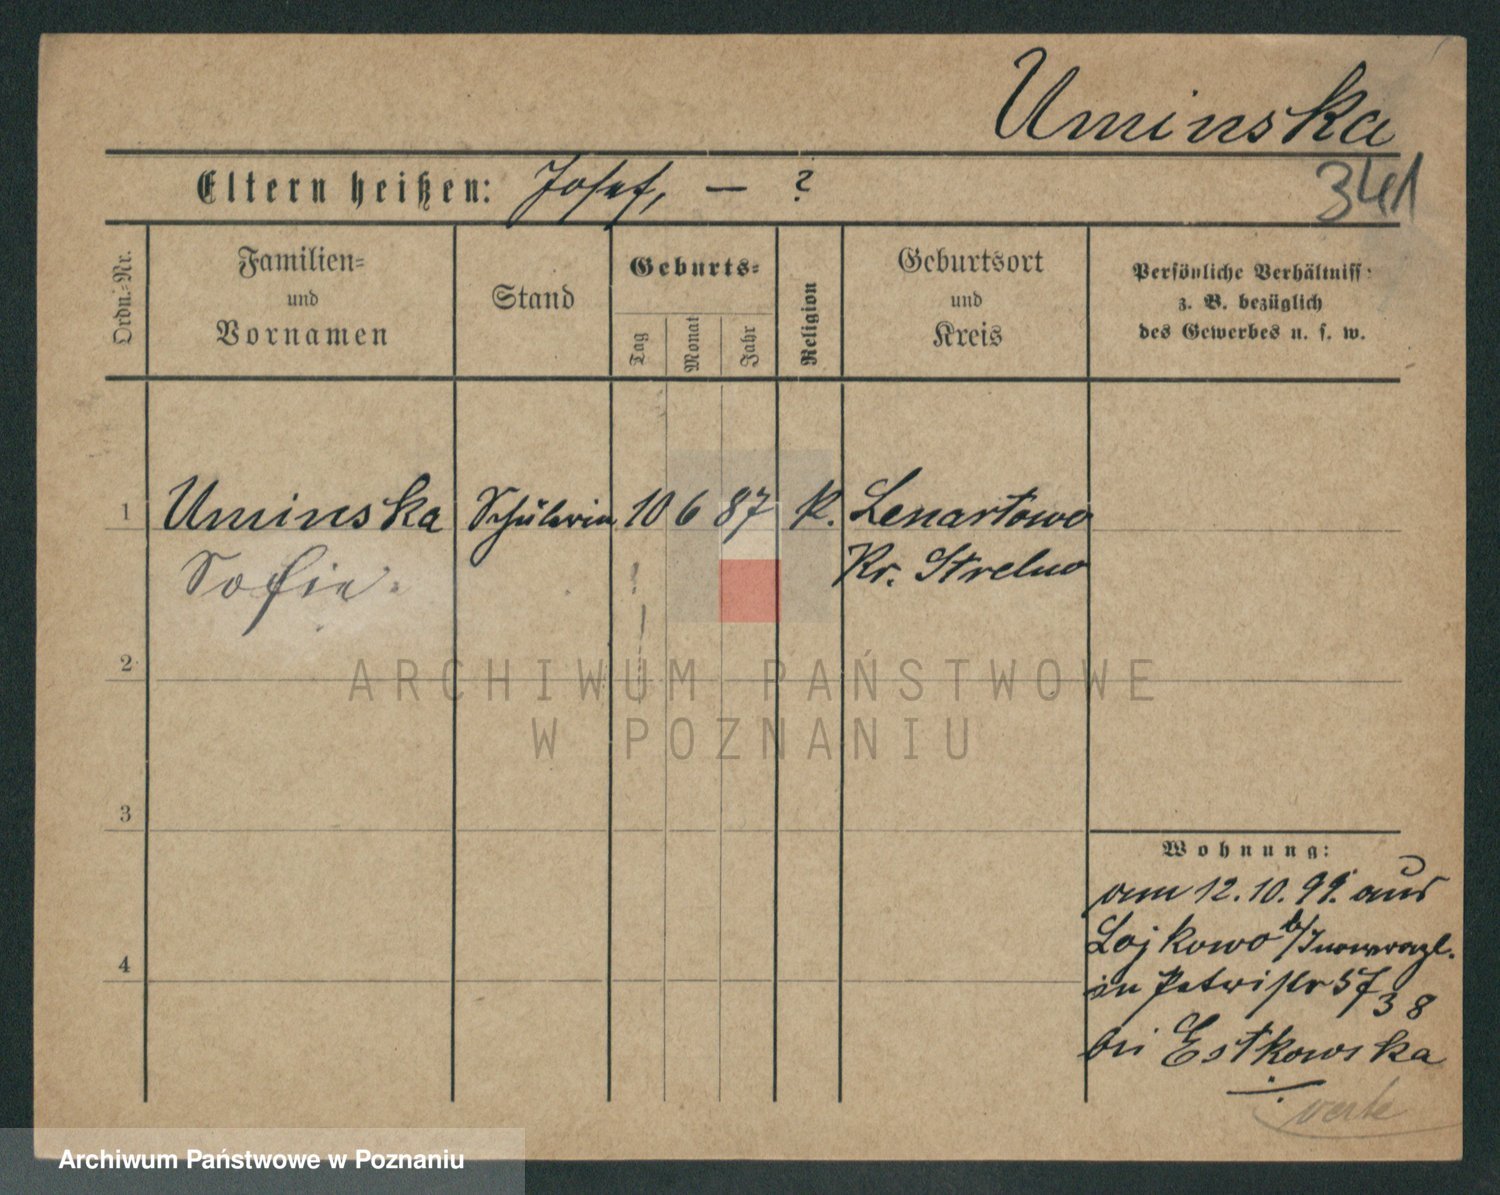 Uminska
341
Eltern heißen: Josef, — ?
Ordn.-Nr.
Familien-
und
Vornamen
Stand
Geburts-
Tag
Monat
Jahr
Religion
Geburtsort
und
Kreis
Persönliche Verhältniss:
z. B. bezüglich
des Gewerbes u. s. w.
1 Uminska Schülerin 10 6 87 k. Lenartowo
Sofie Kr. Strelno
2
3
4
Wohnung:
vom 12. 10. 99. aus
Lojkowo b/Inowrazl.
in Petristr 5
38
bei Estkowska
ARCHIWUM PAŃSTWOWE
W POZNANIU
Archiwum Państwowe w Poznaniu